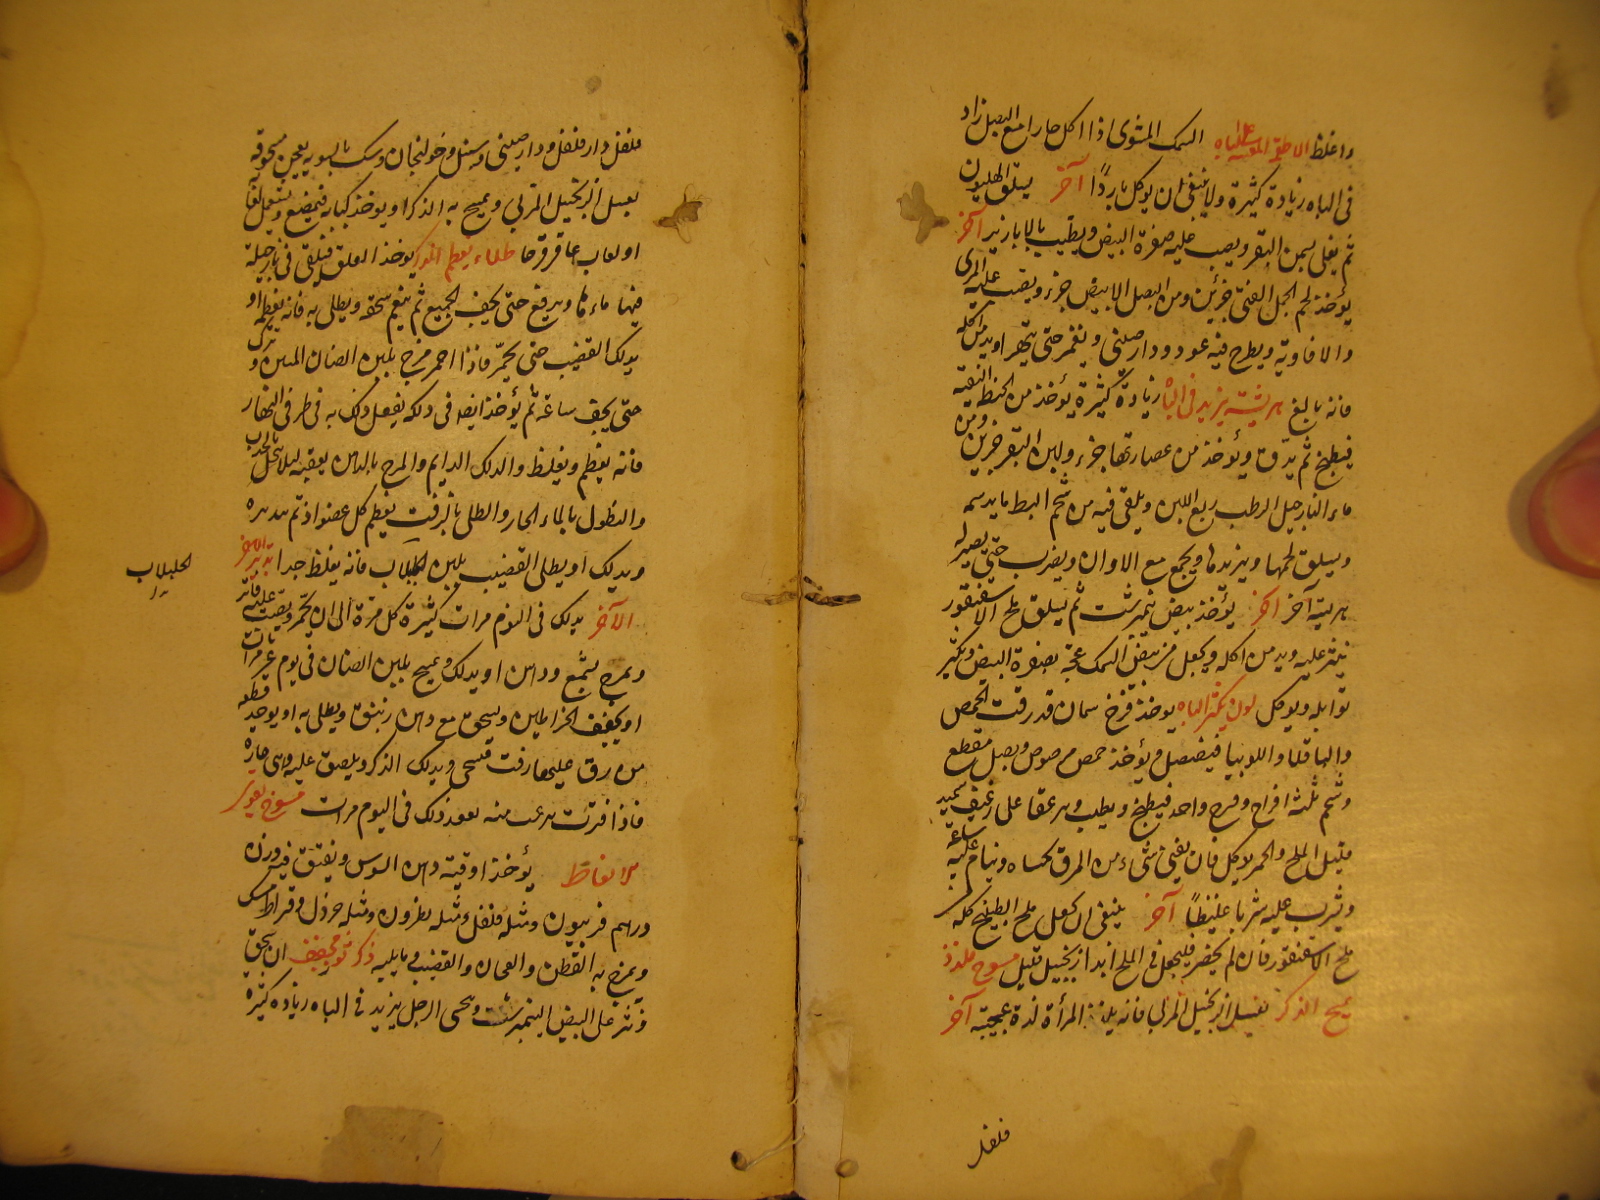 واغلظ الاطعمة السمك المشوى اذا اكل حارا مع البصل زاد
فى الباه زيادة كثيرة ولا ينبغى ان يوكل باردًا آخر يسلق الهليون
ثم يغلى بسمن البقر ويصب عليه صفرة البيض ويطيب بالابازير آخر
يؤخذ لحم الحمل الفتى جزئين ومن البصل الابيض جزء ويصب عليه المرى
والافاويه ويطرح فيه عود ودارصينى ويغمر حتى يتهرا ويدمن اكله
فانه بالغ هريسة يزيد فى الباه زيادة كثيرة يؤخذ من الحنطة النقية
فيطبخ ثم يدق ويؤخذ من عصارتها جزء ولبن البقر جزئين ومن
ماء النارجيل الرطب ربع اللبن ويلقى فيه من شحم البط ما يدسمه
ويسلق لحمها ويزيد ها ويجمع مع الاوان ويضرب حتى يصير له
هريسة آخر آخر يؤخذ بيض نيمرشت ثم يسلق ملح الاسقنقور
ينثر عليه ويدمن اكله ويجعل من بيض السمك عجة بصفرة البيض ويكثر
توابله ويوكل لون يكثر الباه يوخذ فرخ سمان قد زقت الحمص
والباقلا واللوبيا فيفصل ويؤخذ حمص مرضوض وبصل مقطع
وشحم ثلثة افراخ وفرخ واحد فيطبخ ويطيب ويهرعقا على رغيف سميد
قليل الملح والخمر يوكل فان بقى شىء من المرق تحساه وينام عليه ساعة
ويشرب عليه شربا غليظاً آخر ينبغى ان يجعل ملح الطبيخ كله
ملح الاسقنقور فان لم يحضر فليجعل فى الملح ابدا زنجبيل قليل مسوح ملذذ
يمسح الذكر بعسل الزنجبيل المربى فانه يلذذ المرأة لذة عجيبة آخر
فلفل
فلفل دارفلفل ودارصينى وسنبل وخولنجان ومسك بالسويه يعجن مسحوقه
بعسل الزنجبيل المربى ويمسح به الذكر او يوخذ كبابه فيمضغ ويستعمل لعابها
او لعاب عاقرقرحا طلاء يعظم الذكر يوخذ العلق فيلقى فى نارجيلة
فيها ماءها ويرفع حتى يجف الجميع ثم ينعم سحقه ويطلى به فانه يعظمه او
يدلك القضيب حتى يحمر فاذا احمر مرخ بلبن الضان المسن ويترك
حتى يجف ساعة ثم يؤخذ ايضا فى دلكه يفعل ذلك به فى طرفى النهار
فانه يعظم ويغلظ والدلك الدايم والمرخ بالدهن يعقبه ليلا ينحل الجذب
والنطول بالماء الحار والطلى بالزفت يعظم كل عضو اذ تم تدبيره
ويدلك او يطلى القضيب بلبن الحلبلاب فانه يغلظ جدا تدبير آخر
الحلبلاب
الآخر يدلك فى اليوم مرات كثيرة كل مرة الى ان يحمر ويصب عليه ماء فاتر
ويمرخ بشمع ودهن او يدلك ويمسح بلبن الضان فى يوم عشر مرات
او يجفف الخراطين ويسحق مع دهن زنبق ويطلى به او يوخذ قطعة
من رق عليها زفت فيسخن ويدلك الذكر ويلصق عليه وهى حارة
فاذا فترت نزعت منه يعود ذلك فى اليوم مرات مسوح يقوى
للانعاظ يؤخذ اوقية دهن السوسن ويفتق فيه وزن
درهم فربيون ومثله فلفل ومثله نطرون ومثله خردل وقيراط مسك
ويمرخ به القطن والعانة والقضيب وما يليه ذكر ثور مجفف ان سحق
ونثر على البيض النيمبرشت وتحسى الرجل يزيد فى الباه زيادة كثيرة